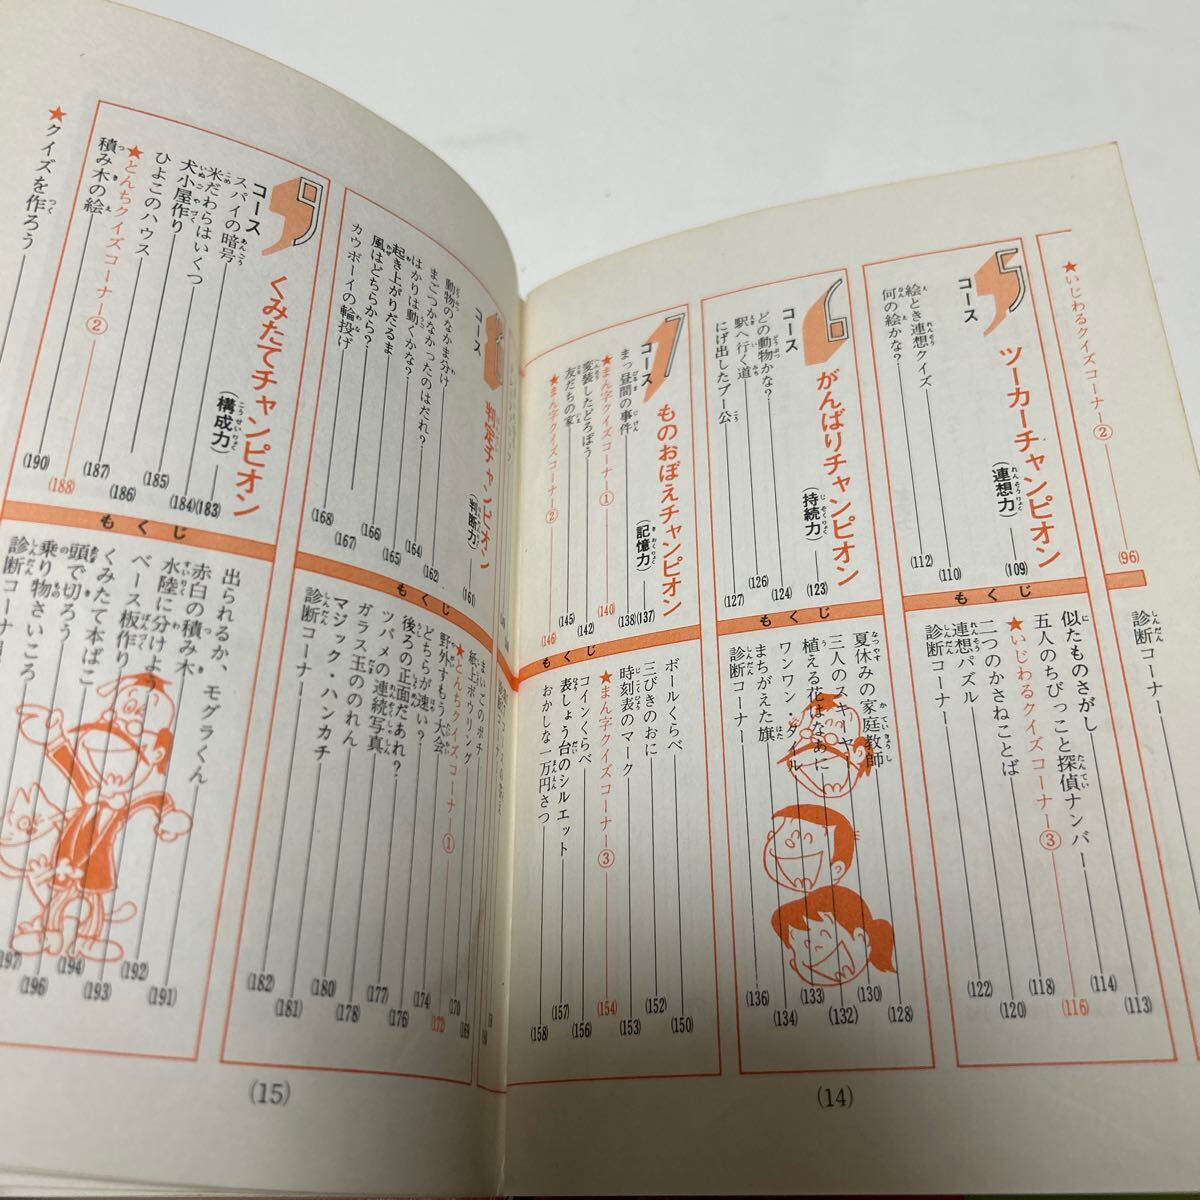 ★いじわるクイズコーナー② (96)
5 コース ツーカーチャンピオン (連想力) (109)
絵とき連想クイズ (110)
何の絵かな? (112)
もくじ
診断コーナー (113)
似たものさがし (114)
五人のちびっこ探偵ナンバー
★いじわるクイズコーナー③ (116)
二つのかさねことば (118)
連想パズル (120)
診断コーナー (122)
6 コース がんばりチャンピオン (持続力) (123)
どの動物かな? (124)
駅へ行く道 (126)
にげ出したブー公 (127)
もくじ
夏休みの家庭教師 (128)
三人のスキーヤー (130)
植える花はなあに (132)
ワンワン・ダイル (133)
まちがえた旗 (134)
診断コーナー (136)
7 コース ものおぼえチャンピオン (記憶力) (137)
まっ昼間の事件 (138)
★まん字クイズコーナー① (140)
変装したどろぼう (142)
友だちの家 (145)
★まん字クイズコーナー② (146)
もくじ
ボールくらべ (150)
三びきのおに (152)
時刻表のマーク (153)
★まん字クイズコーナー③ (154)
コインくらべ (156)
表しょう台のシルエット (157)
おかしな一万円さつ (158)
(14)
コース 判定チャンピオン (判断力) (161)
動物のなかま分け (162)
まごつかなかったのはだれ? (164)
はかりは動くかな? (165)
起き上がりだるま (166)
風はどちらから? (167)
カウボーイの輪投げ (168)
もくじ
まいごのポチ (169)
紙上ボウリング (170)
★とんちクイズコーナー① (172)
野外すもう大会 (174)
どちらが速い? (176)
後ろの正面だあれ? (177)
ツバメの連続写真 (178)
ガラス玉ののれん (180)
マジック・ハンカチ (181)
診断コーナー (182)
9 コース くみたてチャンピオン (構成力) (183)
スパイの暗号 (184)
米だわらはいくつ (185)
犬小屋作り (186)
ひよこのハウス (187)
★とんちクイズコーナー② (188)
積み木の絵 (190)
★クイズを作ろう
もくじ
モグラくん (191)
出られるか、
赤白の積み木 (192)
水陸に分けよう (193)
ベース板作り (194)
くみたて本ばこ (196)
頭で切ろう (197)
乗り物さいころ
診断コーナー
(15)